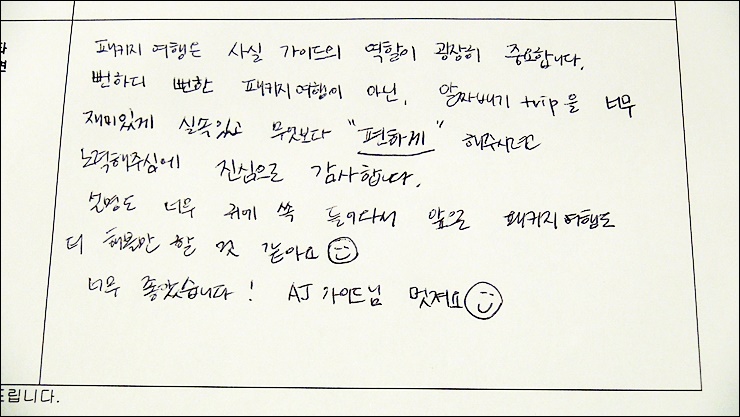 패키지 여행은 사실 가이드의 역할이 굉장히 중요합니다.
뻔하디 뻔한 패키지여행이 아닌, 알짜배기 trip을 너무
재미있게 실속있고 무엇보다 "편하게" 해주시려고
노력해주심에 진심으로 감사합니다.
설명도 너무 귀에 쏙 들어와서 앞으로 패키지여행도
더 해볼만 할 것 같아요
너무 좋았습니다! AJ 가이드님 멋져요
드립니다.